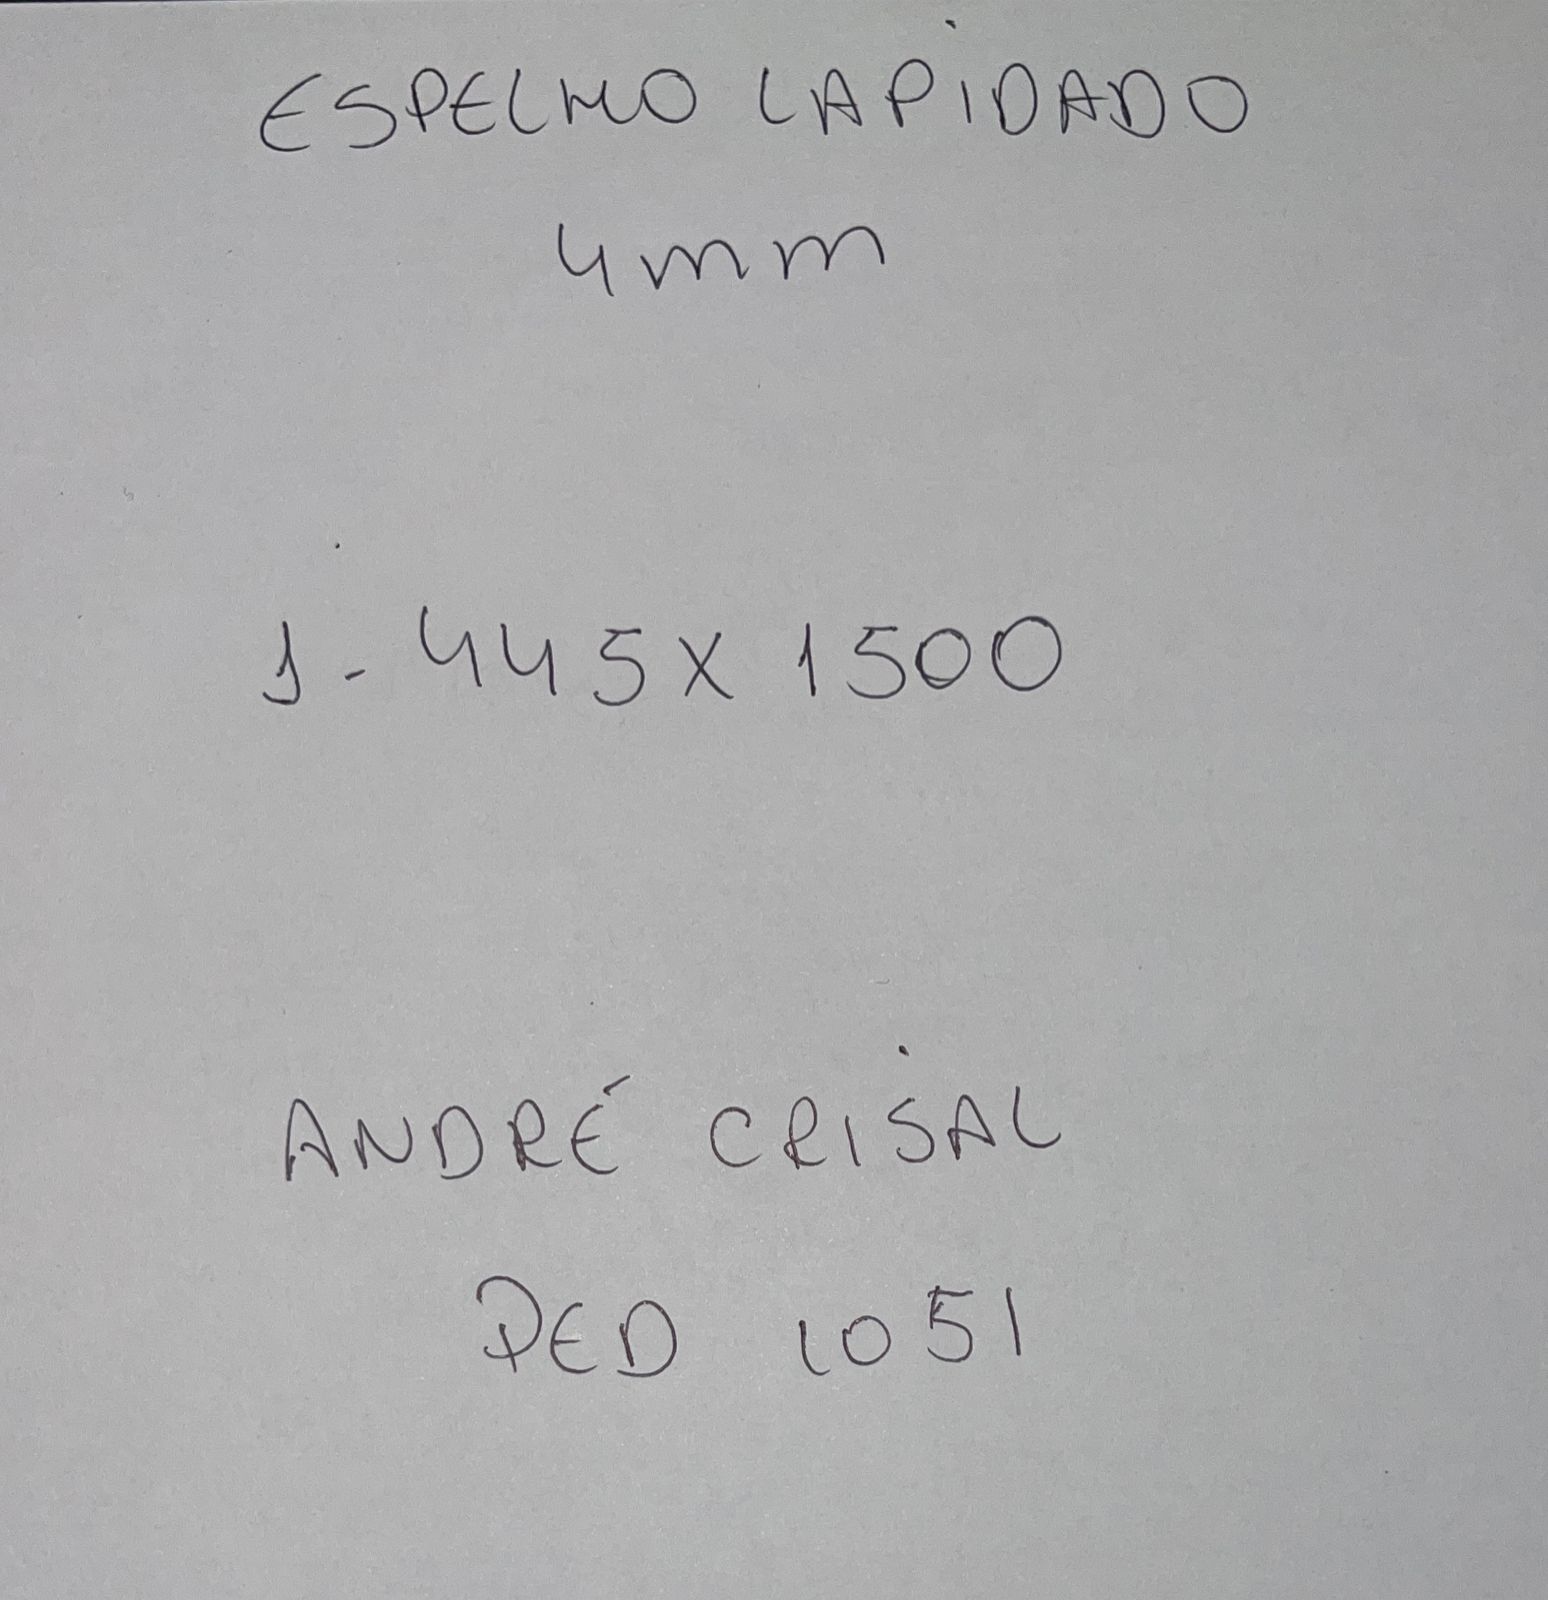 ESPELHO LAPIDADO
4mm
1 - 445 X 1500
ANDRÉ CRISAL
PED 1051